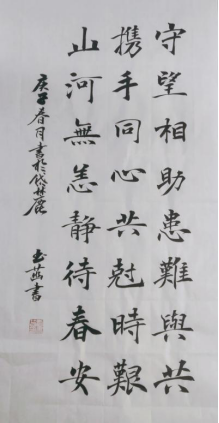 守望相助患難與共
携手同心共尅時艱
山河無恙靜待春安
庚子春月書於
書